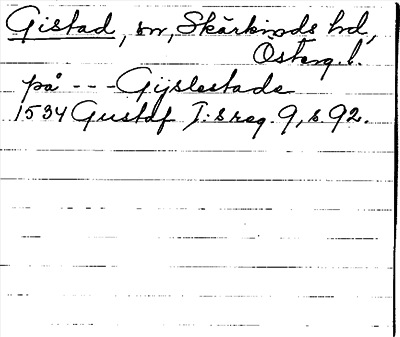 Gistad, sn, Skärkinds hd,
Österg. l.
på --- Gijslestade
1534 Gustaf I:s reg. 9, s. 92.